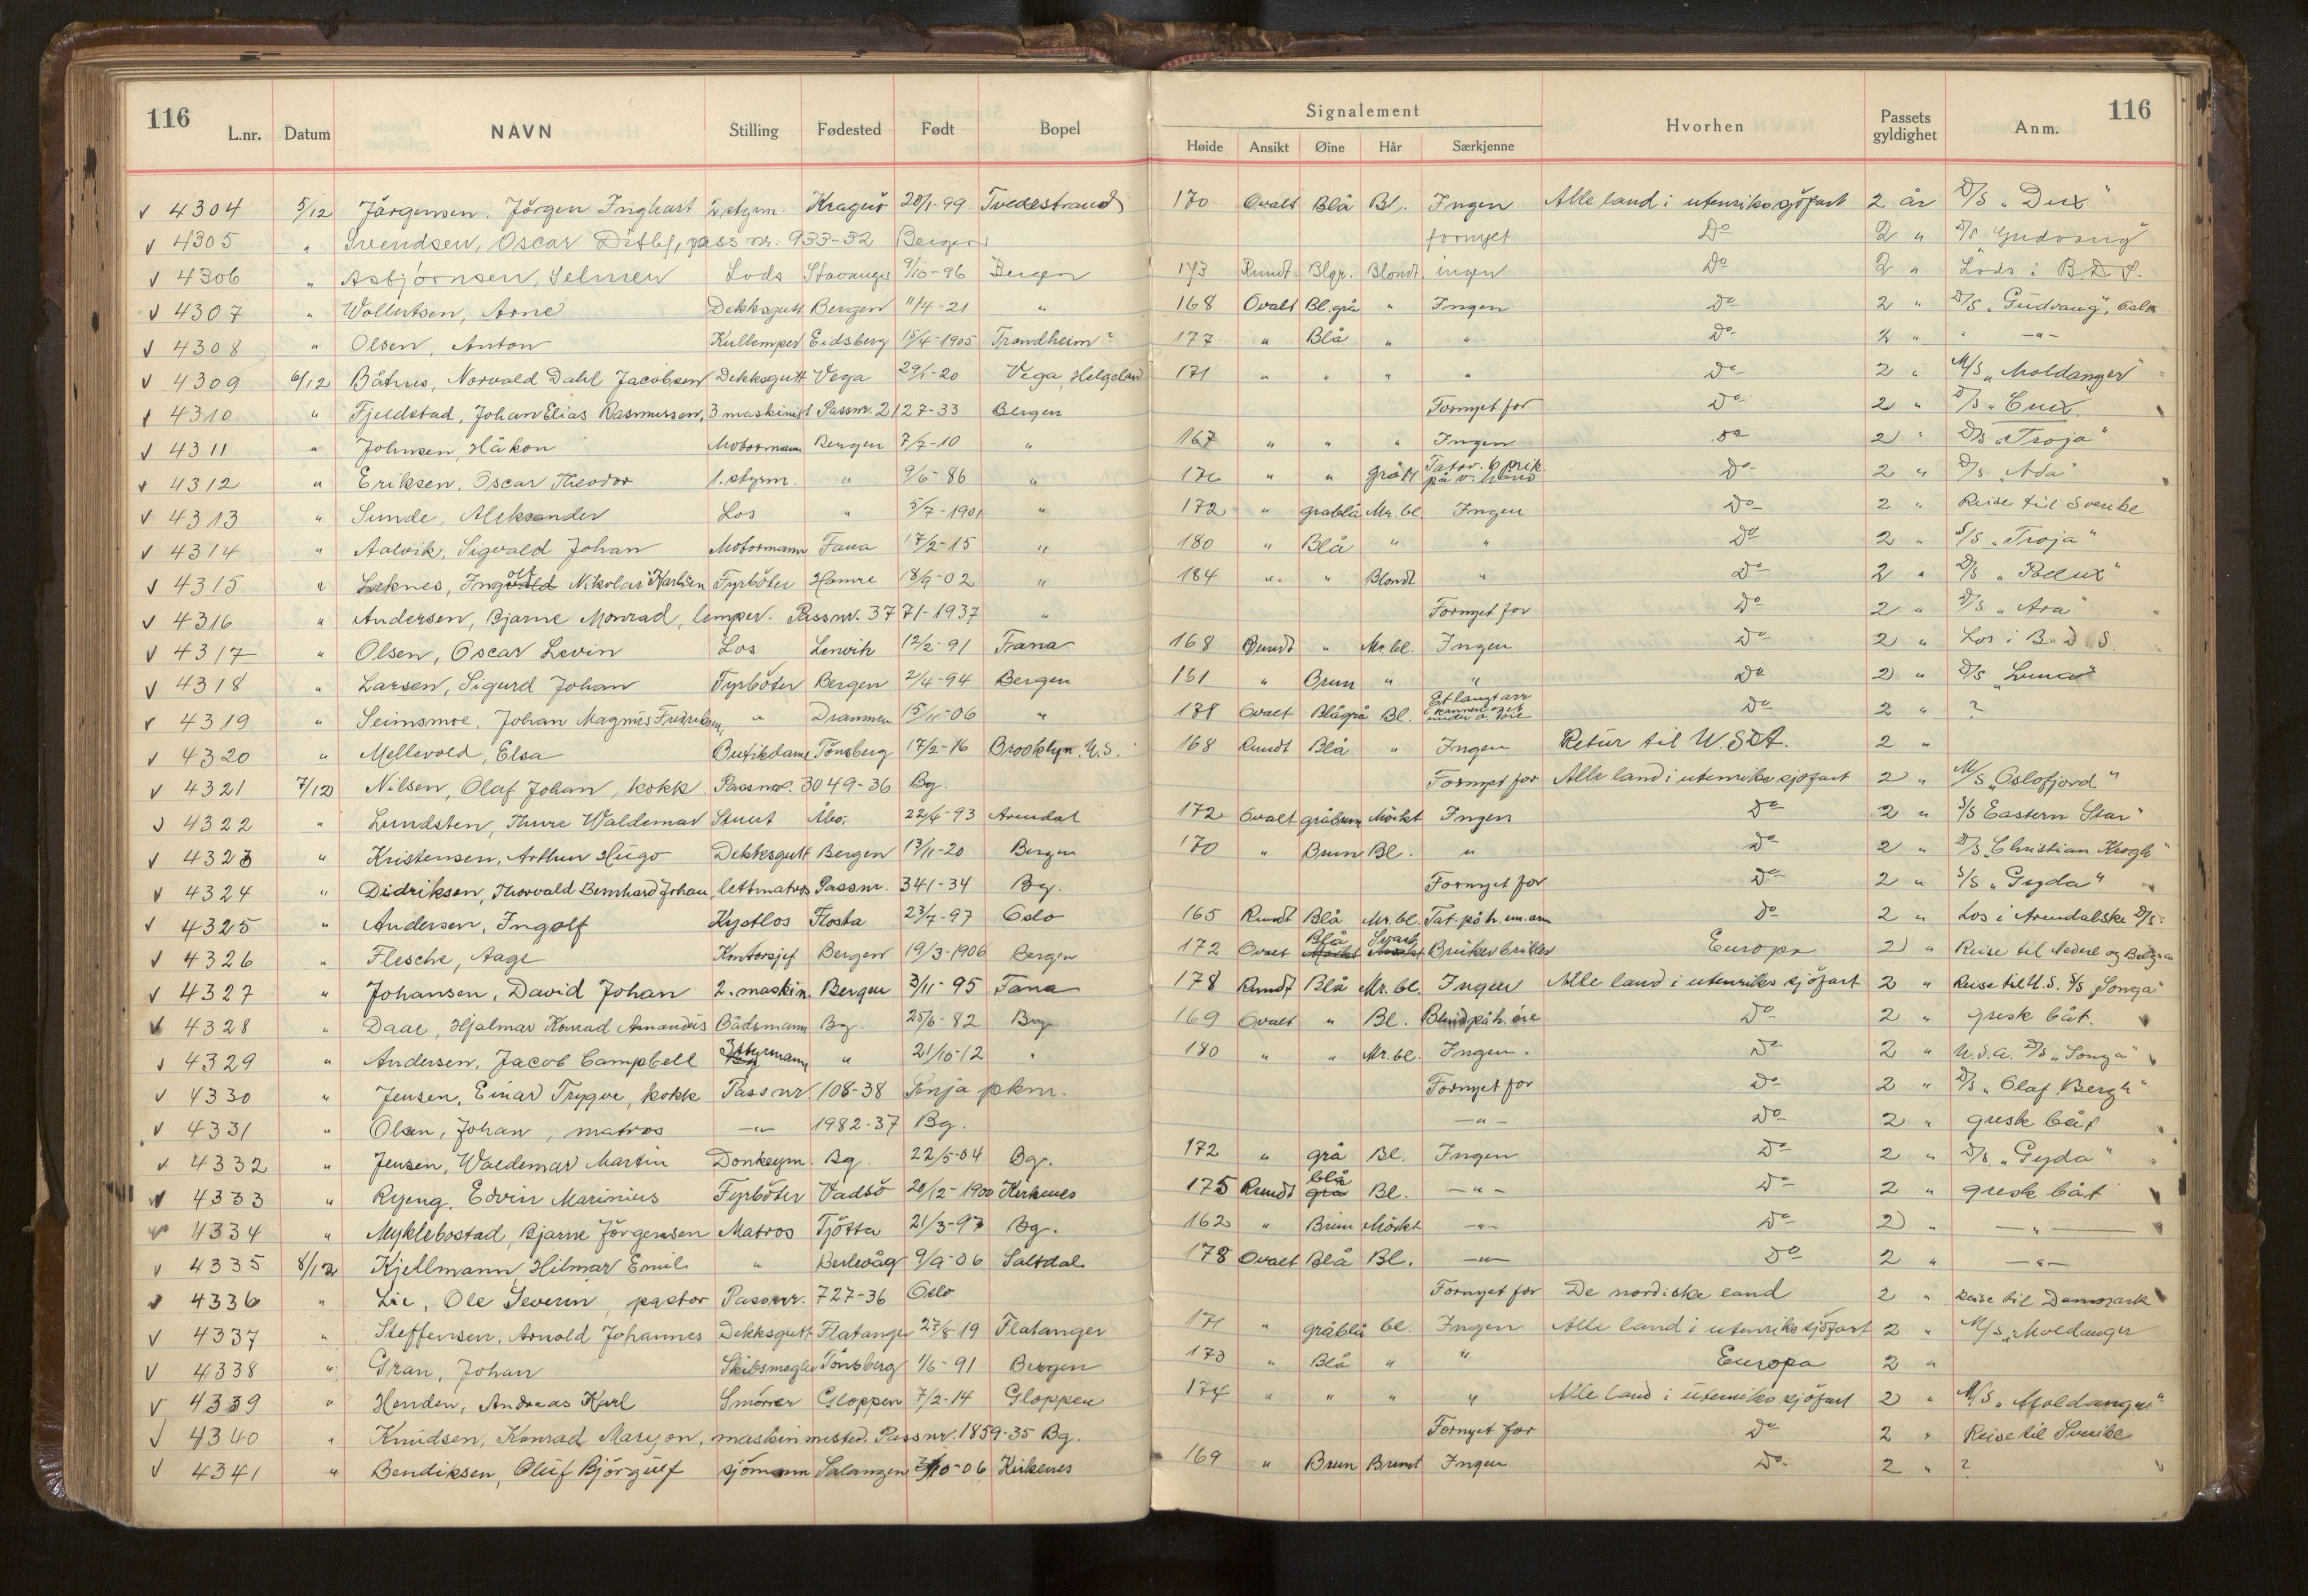 116
Signalement
116
L.nr. Datum NAVN Stilling Fødested Født Bopel Høide Ansikt Øine Hår Særkjenne Hvorhen Passets gyldighet Anm.
v 4304 5/12 Jörgensen, Jörgen Inghart 2 styrm. Kragerö 20/1-99 Tvedestrand 170 Ovalt Blå Bl. Ingen Alle land i utenriks sjöfart 2 år D/S „Dux"
v 4305 " Svendsen, Oscar Ditlef, pass nr. 933-32 Bergen fornyet Do 2 " D/S „Gudvang"
v 4306 " Asbjörnsen, Selmer Lods Stavanger 9/10-96 Bergen 173 Rundt Blgr. Blondt ingen Do 2 " Lods i B.D.S.
v 4307 " Wollertsen, Arne Dekksgutt Bergen 11/4-21 " 168 Ovalt Bl.grå " Ingen Do 2 " D/S „Gudvang", Oslo
v 4308 " Olsen, Anton Kullemper Eidsberg 15/4-1905 Trondheim 177 " Blå " " Do 2 " " -"-
v 4309 6/12 Båtnes, Norvald Dahl Jacobsen Dekksgutt Vega 29/1-20 Vega, Helgeland 171 " " " " Do 2 " M/S „Moldanger"
v 4310 " Fjeldstad, Johan Elias Rasmussen, 3 maskinist Passnr. 2127-33 Bergen Fornyet for Do 2 " D/S „Crux"
v 4311 " Johnsen, Håkon Motormann Bergen 7/7-10 " 167 " " " Ingen Do 2 " D/S „Troja"
v 4312 " Eriksen, Oscar Theodor 1. styrm. " 9/6-86 " 170 " " Tatov. 6 prik. på v. hånd Do 2 " D/S „Ada"
v 4313 " Sunde, Aleksander Los " 5/7-1901 " 172 " gråblå Mr. bl. Ingen Do 2 " Reise til Sverike
v 4314 " Aalvik, Sigvald Johan Motormann Fana 17/2-15 " 180 " Blå " " Do 2 " S/S „Troja"
v 4315 " Leknes, Ingolf Nikolai Karlsen Fyrböter Hamre 18/9-02 " 184 " " Blondt " Do 2 " D/S „Pollux"
v 4316 " Andersen, Bjarne Monrad, lemper. Passnr. 3771-1937 " Fornyet for Do 2 " D/S „Ara"
v 4317 " Olsen, Oscar Levin Los Lenvik 12/2-91 Fana 168 Rundt " Mr. bl. Ingen Do 2 " Los i B.D.S.
v 4318 " Larsen, Sigurd Johan Fyrböter Bergen 2/4-94 Bergen 161 " Brun " " Do 2 " D/S „Luna"
v 4319 " Seimsmoe, Johan Magnus Fredriksen, " Drammen 15/11-06 " 178 Ovalt Blågrå Bl. Et langt arr i pannen og et under Do 2 " ?
v 4320 " Mellevold, Elsa Butikdame Tönsberg 17/2-16 Brooklyn. U.S. 168 Rundt Blå " Ingen Retur til U.S.A. 2 "
v 4321 7/12 Nilsen, Olaf Johan, kokk Passnr. 3049-36 Bg. Fornyet for Alle land i utenriks sjöfart 2 " M/S „Oslofjord"
v 4322 " Lundsten, Thure Waldemar Stuert Åbo. 22/6-93 Arendal 172 Ovalt gråbrun Mörkt Ingen Do 2 " S/S Eastern Star"
v 4323 " Kristensen, Arthur Hugo Dekksgutt Bergen 13/11-20 Bergen 170 " Brun Bl. " Do 2 " D/S „Christian Krogh"
v 4324 " Didriksen, Thorvald Bernhard Johan, lettmatros Passnr. 341-34 Bg. Fornyet for Do 2 " S/S „Gyda"
v 4325 " Andersen, Ingolf Kystlos Flosta 23/7-97 Oslo 165 Rundt Blå Mr. bl. Tat. på h. un. arm Do 2 " Los i Arendalske D/S:
v 4326 " Flesche, Aage Kontorsjef Bergen 19/3-1906 Bergen 172 Ovalt Blå Svart Bruker briller Europa 2 " Reise til Nederl og Belgia
v 4327 " Johansen, David Johan 2. maskin. Bergen 3/11-95 Fana 178 Rundt Blå Mr. bl. Ingen Alle land i utenriks sjöfart 2 " Reise til U.S. S/S „Songa"
v 4328 " Daae, Hjalmar Konrad Amandus Bådsmann Bg. 25/6-82 Bg. 169 Ovalt " Bl. Blind på h. öie Do 2 " gresk båt.
v 4329 " Andersen, Jacob Campbell 3 styrmann " 21/10-12 " 180 " " Mr. bl. Ingen. Do 2 " U.S.A. D/S „Songa"
v 4330 " Jensen, Einar Trygve, kokk Pass nr. 108-38 Senja pkm. Fornyet for Do 2 " D/S „Olaf Bergh"
v 4331 " Olsen, Johan, matros -"- 1982-37 Bg. -"- Do 2 " gresk båt
v 4332 " Jensen, Waldemar Martin Donkeym. Bg. 22/5-04 Bg. 172 " grå Bl. Ingen Do 2 " D/S. „Gyda"
v 4333 " Ryeng. Edvin Marinius Fyrböter Vadsö 20/12-1900 Kirkenes 175 Rundt blå Bl. -"- Do 2 " gresk båt
v 4334 " Myklebostad, Bjarne Jörgensen Matros Tjötta 21/3-97 Bg. 162 " Brun Mörkt -"- Do 2 " -"-
v 4335 8/12 Kjellmann, Hilmar Emil " Berlevåg 9/9-06 Saltdal 178 Ovalt Blå Bl. -"- Do 2 " -"-
v 4336 " Lie, Ole Severin, pastor Passnr. 727-36 Oslo Fornyet for De nordiske land 2 " Reise til Danmark
v 4337 " Steffensen, Arnold Johannes Dekksgutt Flatanger 27/8 19 Flatanger 171 " gråblå bl. Ingen Alle land i utenriks sjöfart 2 " M/S „Moldanger
v 4338 " Gran, Johan Skibsmegler Tönsberg 1/6-91 Bergen 173 " Blå " " Europa 2 "
v 4339 " Henden, Andreas Karl Smörer Gloppen 7/2-14 Gloppen 174 " " " " Alle land i utenriks sjöfart 2 " M/S „Moldanger"
v 4340 " Knudsen, Konrad Marijon, maskinmester. Passnr. 1859-35 Bg. Fornyet for Do 2 " Reise til Sverike
v 4341 " Bendiksen, Oluf Björgulf sjömann Salangen /10-06 Kirkenes 169 " Brun Brunt Ingen Do 2 " ?